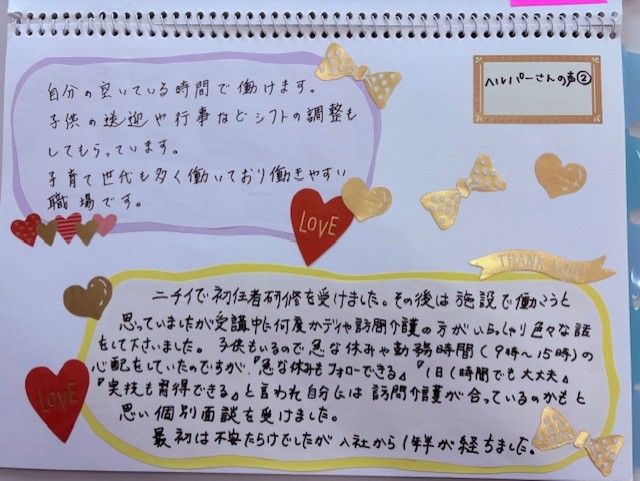 ヘルパーさんの声②
自分の空いている時間で働けます。
子供の送迎や行事などシフトの調整も
してもらっています。
子育て世代も多く働いており働きやすい
職場です。
LOVE
THANK YOU
ニチイで初任者研修を受けました。その後は施設で働こうと
思っていましたが受講中に何度かデイや訪問介護の方がいらっしゃり色々な話
をして下さいました。子供もいるので急な休みや勤務時間(9時〜15時)の
心配をしていたのですが、『急な休みもフォローできる』『1日1時間でも大丈夫』
『実技も習得できる』と言われ自分には訪問介護が合っているのかもと
思い個別面談を受けました。
最初は不安だらけでしたが入社から1年半が経ちました。
LOVE